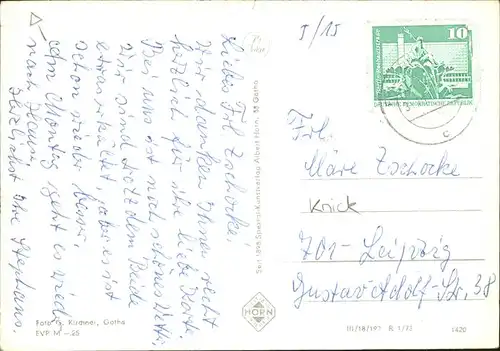 Liebes Frl. Zschocke!
Wir danken Ihnen recht
herzlich für Ihre liebe Karte.
Bei uns ist noch schönes Wetter,
Wir sind trotzdem Beide
etwas erkältet, aber es ist
schon wieder besser.
Am Montag geht es wieder
nach Hause.
Herzlichst Ihre Stephans.
Foto: G. Kürdner, Gotha
EVP M -.25
Seit 1898 Spezial-Kunstverlag Albert Horn, 58 Gotha
HORN
5/15
10
DEUTSCHE DEMOKRATISCHE REPUBLIK
Frl.
Märe Zschocke
Knick
701-Leipzig
Gustav Adolf-Str. 38
III/18/192 R 1/73 1420